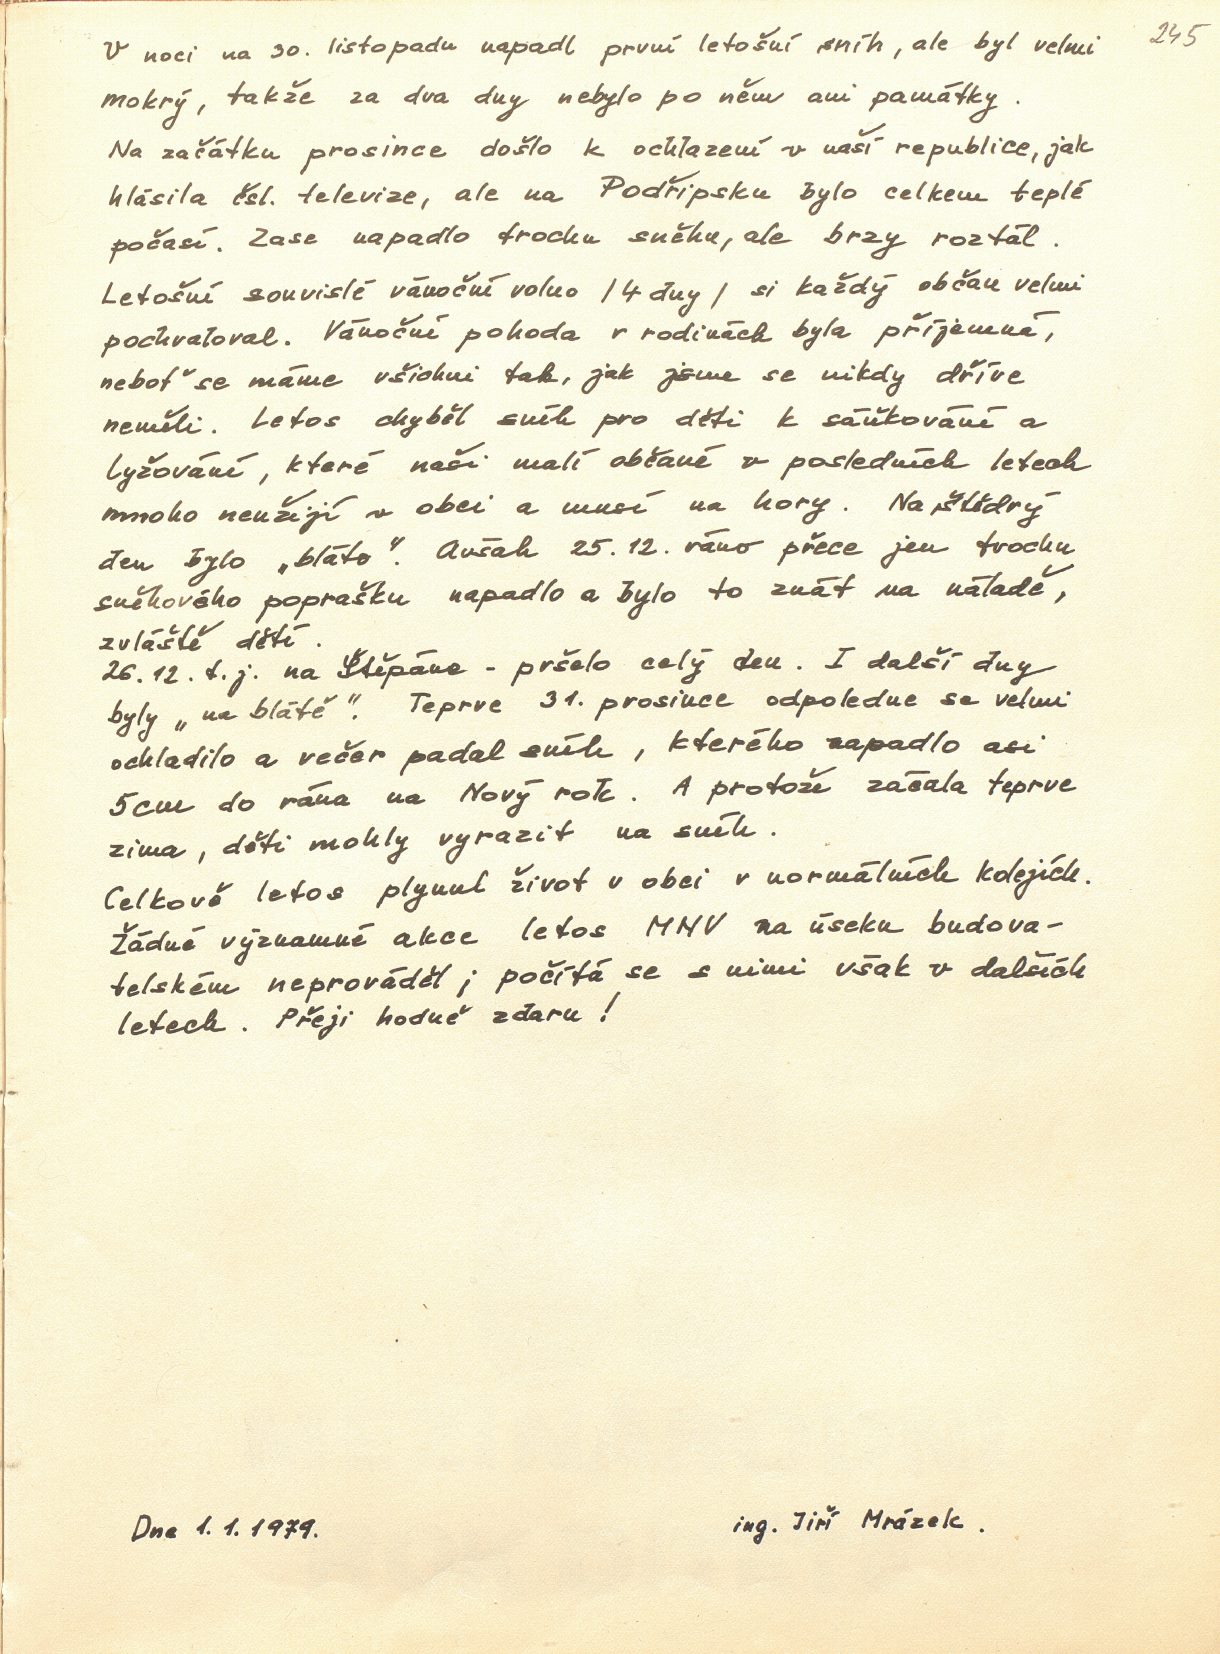 245
V noci na 30. listopadu napadl první letošní sníh, ale byl velmi
mokrý, takže za dva dny nebylo po něm ani památky.
Na začátku prosince došlo k ochlazení v naší republice, jak
hlásila čsl. televize, ale na Podřipsku bylo celkem teplé
počasí. Zase napadlo trochu sněhu, ale brzy roztál.
Letošní souvislé vánoční volno /4 dny/ si každý občan velmi
pochvaloval. Vánoční pohoda v rodinách byla příjemná,
neboť se máme všichni tak, jak jsme se nikdy dříve
neměli. Letos chyběl sníh pro děti k sáňkování a
lyžování, které naši malí občané v posledních letech
mnoho neužijí v obci a musí na hory. Na Štědrý
den bylo „bláto“. Avšak 25.12. ráno přece jen trochu
sněhového poprašku napadlo a bylo to znát na náladě,
zvláště dětí.
26.12. t.j. na Štěpána - pršelo celý den. I další dny
byly „na blátě“. Teprve 31. prosince odpoledne se velmi
ochladilo a večer padal sníh, kterého napadlo asi
5cm do rána na Nový rok. A protože začala teprve
zima, děti mohly vyrazit na sníh.
Celkově letos plynul život v obci v normálních kolejích.
Žádné významné akce letos MNV na úseku budova-
telském neprováděl; počítá se s nimi však v dalších
letech. Přeji hodně zdaru!
Dne 1.1.1979.
ing. Jiří Mrázek.